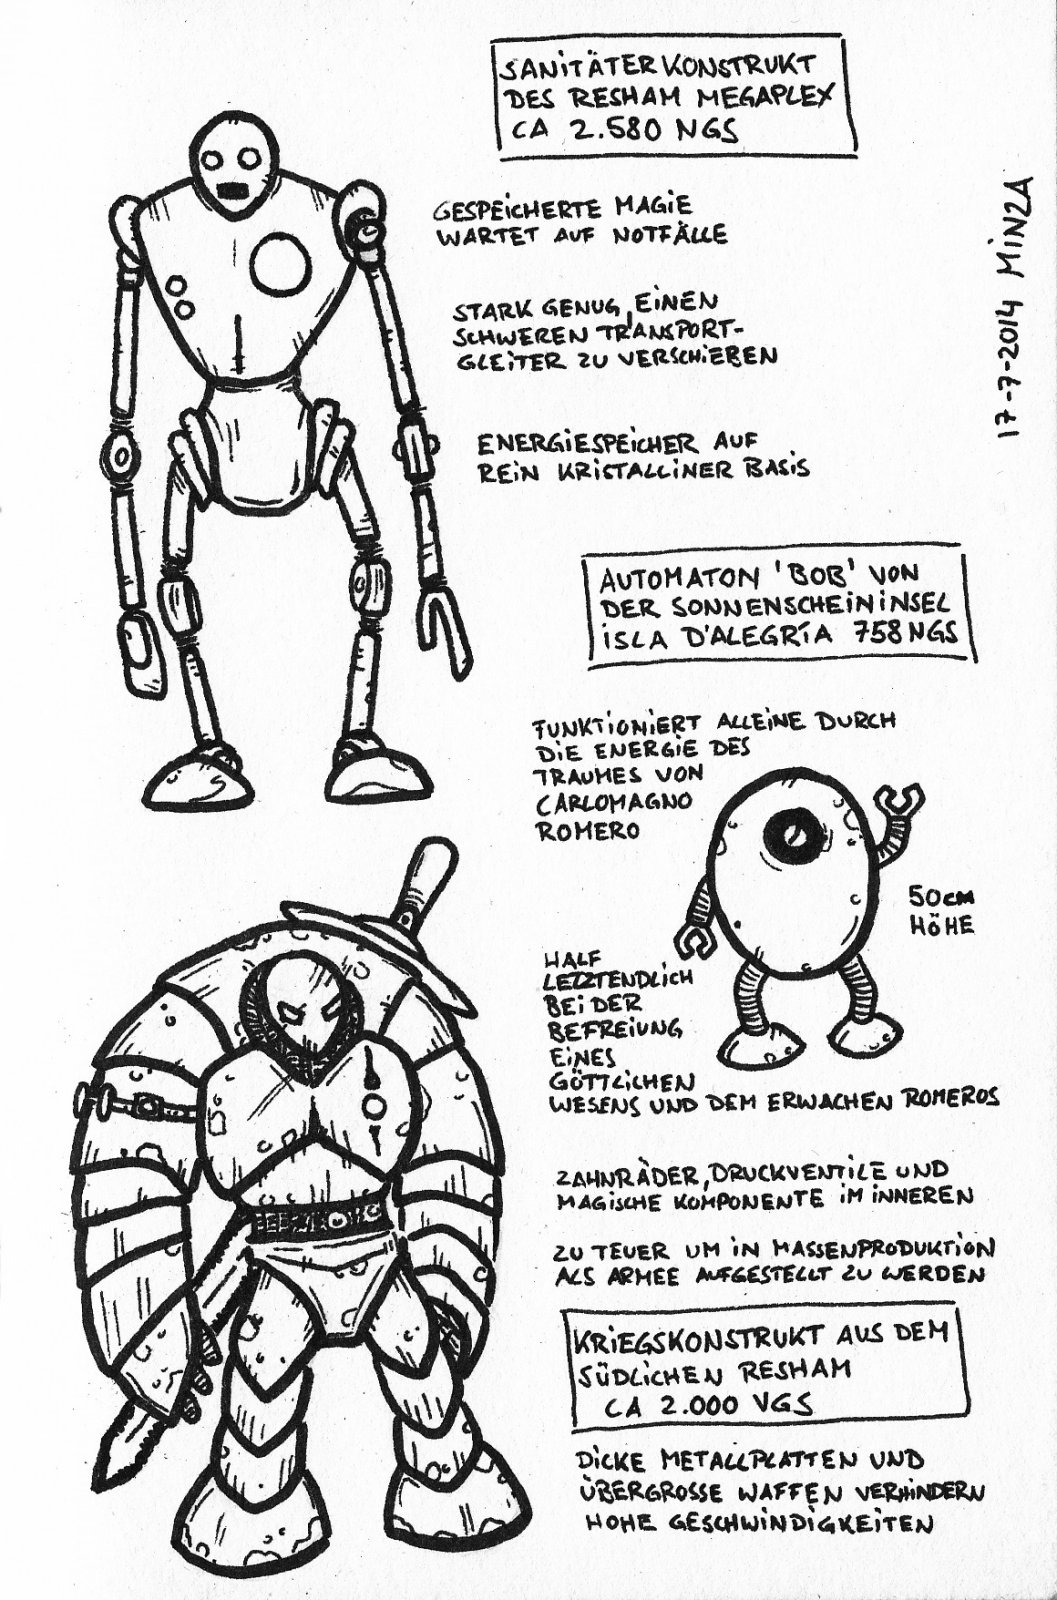 SANITÄTERKONSTRUKT
DES RESHAM MEGAPLEX
CA 2.580 NGS
GESPEICHERTE MAGIE
WARTET AUF NOTFÄLLE
STARK GENUG, EINEN
SCHWEREN TRANSPORT-
GLEITER ZU VERSCHIEBEN
ENERGIESPEICHER AUF
REIN KRISTALLINER BASIS
17-7-2014 MIN2A
AUTOMATON 'BOB' VON
DER SONNENSCHEININSEL
ISLA D'ALEGRÍA 758 NGS
FUNKTIONIERT ALLEINE DURCH
DIE ENERGIE DES
TRAUMES VON
CARLOMAGNO
ROMERO
50CM
HÖHE
HALF
LETZTENDLICH
BEI DER
BEFREIUNG
EINES
GÖTTLICHEN
WESENS UND DEM ERWACHEN ROMEROS
ZAHNRÄDER, DRUCKVENTILE UND
MAGISCHE KOMPONENTE IM INNEREN
ZU TEUER UM IN MASSENPRODUKTION
ALS ARMEE AUFGESTELLT ZU WERDEN
KRIEGSKONSTRUKT AUS DEM
SÜDLICHEN RESHAM
CA 2.000 VGS
DICKE METALLPLATTEN UND
ÜBERGROSSE WAFFEN VERHINDERN
HOHE GESCHWINDIGKEITEN